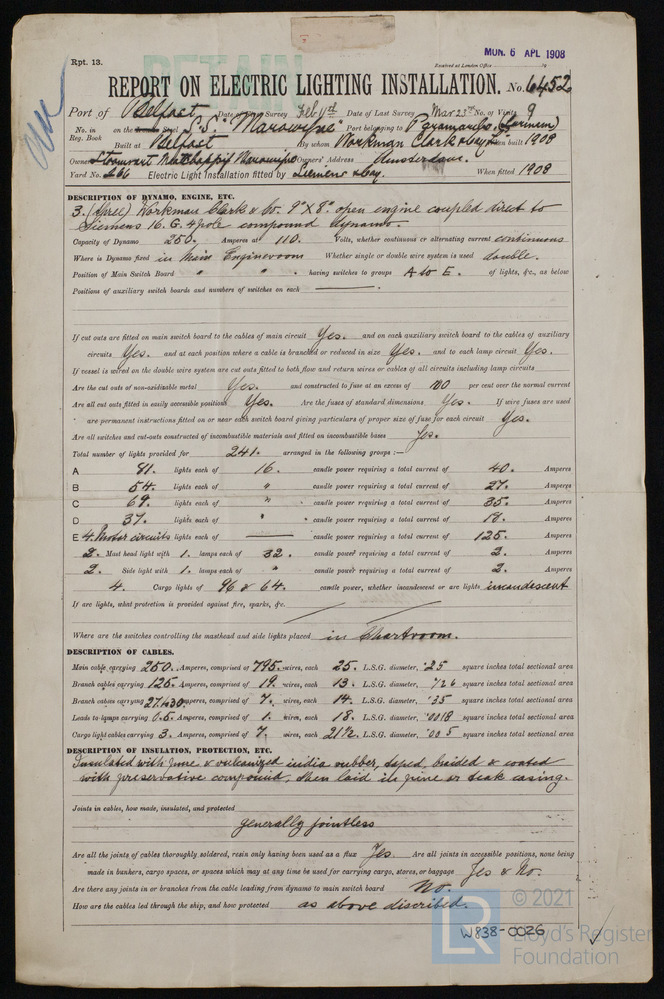 MON. 6 APL 1908
Rpt. 13.
Received at London Office 19
RETAIN
REPORT ON ELECTRIC LIGHTING INSTALLATION. No. 6452
Port of Belfast Date of First Survey Feb 11th Date of Last Survey Mar 23rd No. of Visits 9
No. in Reg. Book on the Steel S.S. "Marowijne" Port belonging to Paramaribo (Surinam)
Built at Belfast By whom Workman Clark & Co Ld When built 1908
Owners' Address Amsterdam
Yard No. 266 Electric Light Installation fitted by Siemens & Co. When fitted 1908
DESCRIPTION OF DYNAMO, ENGINE, ETC.
3. (three) Workman Clark & Co. 9" X 8" open engine coupled direct to
Siemens 16. G. 4 pole compound dynamo.
Capacity of Dynamo 250. Amperes at 110. Volts, whether continuous or alternating current continuous
Where is Dynamo fixed in Main Engineroom Whether single or double wire system is used double.
Position of Main Switch Board " " having switches to groups A to E. of lights, &c., as below
Positions of auxiliary switch boards and numbers of switches on each ———.
If cut outs are fitted on main switch board to the cables of main circuit Yes. and on each auxiliary switch board to the cables of auxiliary
circuits Yes. and at each position where a cable is branched or reduced in size Yes. and to each lamp circuit Yes.
If vessel is wired on the double wire system are cut outs fitted to both flow and return wires or cables of all circuits including lamp circuits
Are the cut outs of non-oxidizable metal Yes. and constructed to fuse at an excess of 100 per cent over the normal current
Are all cut outs fitted in easily accessible positions Yes. Are the fuses of standard dimensions Yes. If wire fuses are used
are permanent instructions fitted on or near each switch board giving particulars of proper size of fuse for each circuit Yes.
Are all switches and cut-outs constructed of incombustible materials and fitted on incombustible bases Yes.
Total number of lights provided for 241. arranged in the following groups :—
A 81. lights each of 16. candle power requiring a total current of 40. Amperes
B 54. lights each of " candle power requiring a total current of 27. Amperes
C 69. lights each of " candle power requiring a total current of 35. Amperes
D 37. lights each of " candle power requiring a total current of 18. Amperes
E 4. Motor circuits lights each of ——— candle power requiring a total current of 125. Amperes
2. Mast head light with 1. lamps each of 32. candle power requiring a total current of 2. Amperes
2. Side light with 1. lamps each of " candle power requiring a total current of 2. Amperes
4. Cargo lights of 96 & 64. candle power, whether incandescent or arc lights incandescent
If arc lights, what protection is provided against fire, sparks, &c.
Where are the switches controlling the masthead and side lights placed in Chartroom.
DESCRIPTION OF CABLES.
Main cable carrying 250. Amperes, comprised of wires, each L.S.G. diameter, ·25 square inches total sectional area
Branch cables carrying 125. Amperes, comprised of 19. wires, each 13. L.S.G. diameter, ·126 square inches total sectional area
Branch cables carrying Amperes, comprised of 7. wires, each 14. L.S.G. diameter, ·35 square inches total sectional area
Leads to lamps carrying 0.5. Amperes, comprised of 1. wires, each 18. L.S.G. diameter, ·0018 square inches total sectional area
Cargo light cables carrying 3. Amperes, comprised of 7. wires, each 21½. L.S.G. diameter, ·005 square inches total sectional area
DESCRIPTION OF INSULATION, PROTECTION, ETC.
Insulated with pure & vulcanized india rubber, taped, braided & coated
with preservative compound, then laid in pine or teak casing.
Joints in cables, how made, insulated, and protected
generally jointless
Are all the joints of cables thoroughly soldered, resin only having been used as a flux Yes Are all joints in accessible positions, none being
made in bunkers, cargo spaces, or spaces which may at any time be used for carrying cargo, stores, or baggage Yes & No.
Are there any joints in or branches from the cable leading from dynamo to main switch board No.
How are the cables led through the ship, and how protected as above discribed.
W838-0026
LR
© 2021
Lloyd's Register
Foundation